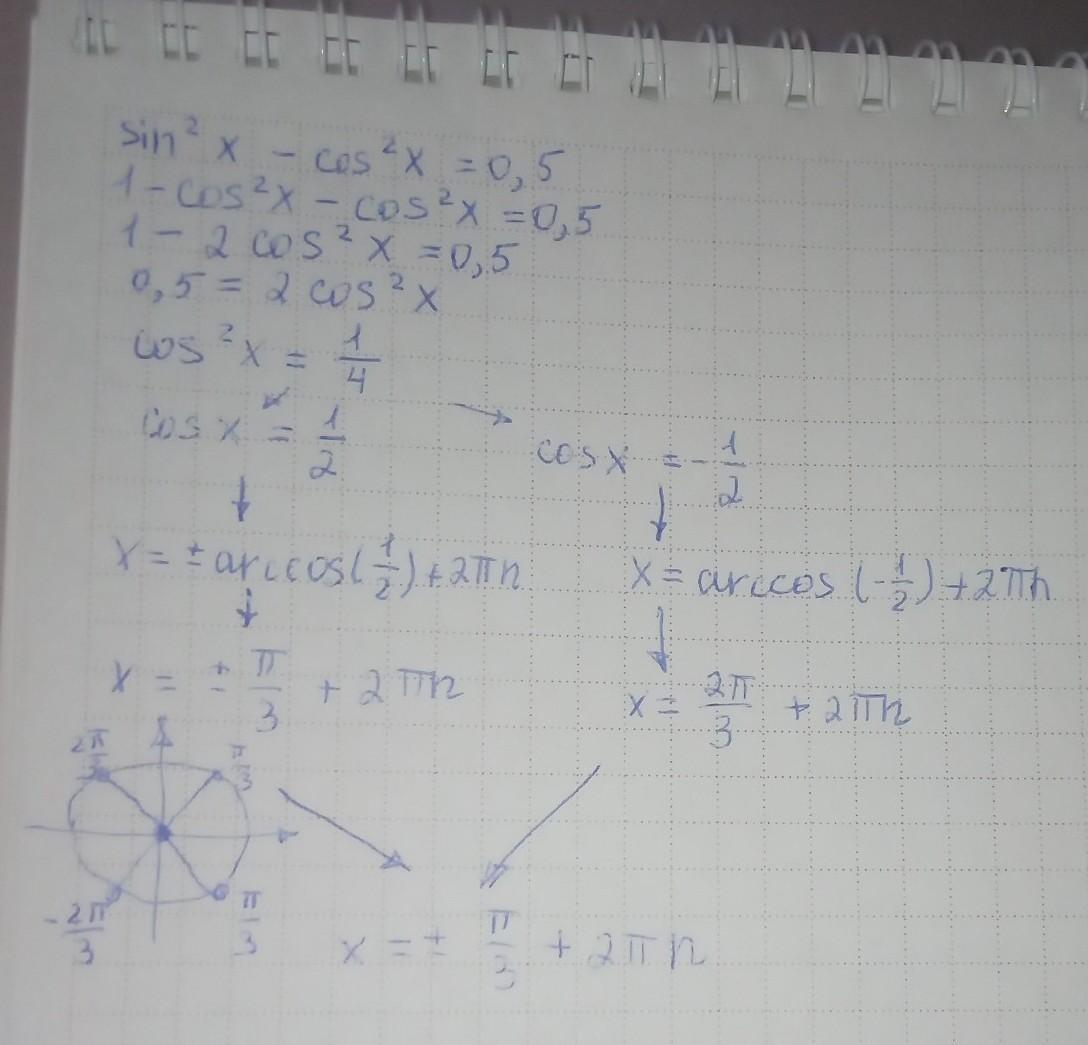 sin² x - cos² x = 0,5
1 - cos² x - cos² x = 0,5
1 - 2 cos² x = 0,5
0,5 = 2 cos² x
cos² x = 1/4
cos x = 1/2
cos x = - 1/2
x = ± arccos(1/2) + 2πn
x = arccos (-1/2) + 2πn
x = ± π/3 + 2πn
x = 2π/3 + 2πn
2π/3
π/3
-2π/3
π/3
x = ± π/3 + 2πn